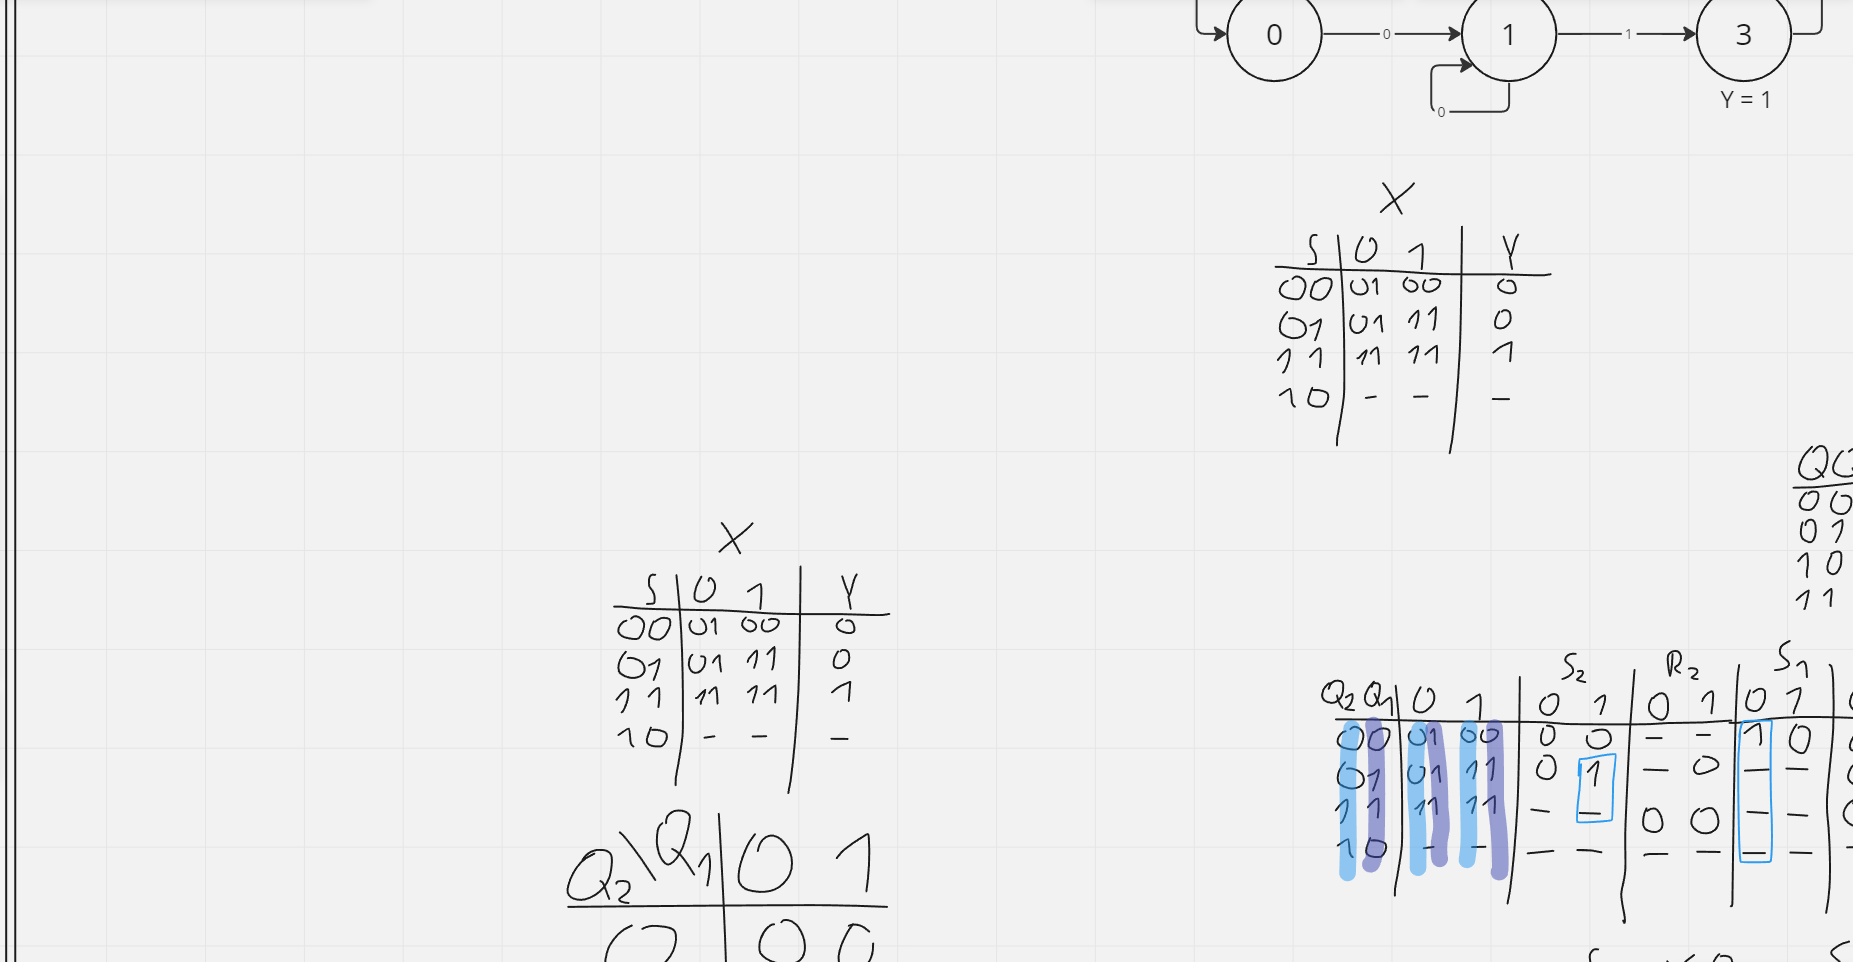 0 0 1 1 3
0
Y = 1
X
S 0 1 Y
00 01 00 0
01 01 11 0
11 11 11 1
10 - - -
QQ
00
01
10
11
X
S 0 1 Y
00 01 00 0
01 01 11 0
11 11 11 1
10 - - -
S2 R2 S1
Q2 Q1 0 1 0 1 0 1 0 1
00 01 00 0 0 - - 1 0
01 01 11 0 1 - 0 - -
11 11 11 - - 0 0 - -
10 - - - - - - - -
Q2\Q1 0 1
0 0 0